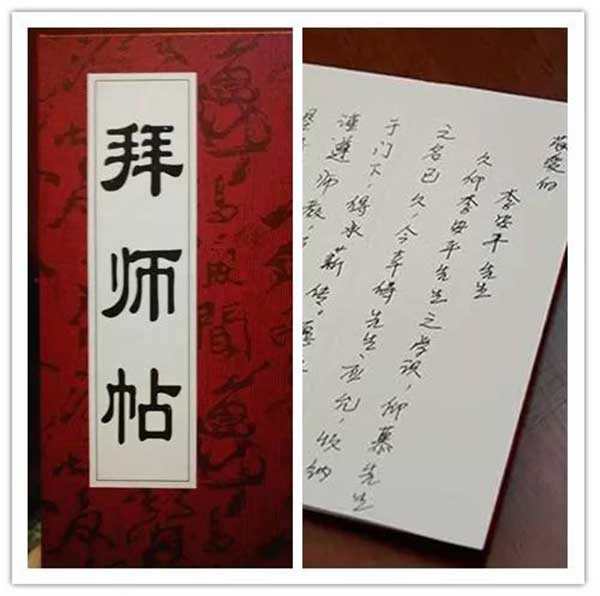 拜师帖
敬爱的
李安平先生
久仰李安平先生之学识，仰慕先生
之名已久，今幸得先生应允，收纳
于门下，得承薪传，愿
谨遵师教，